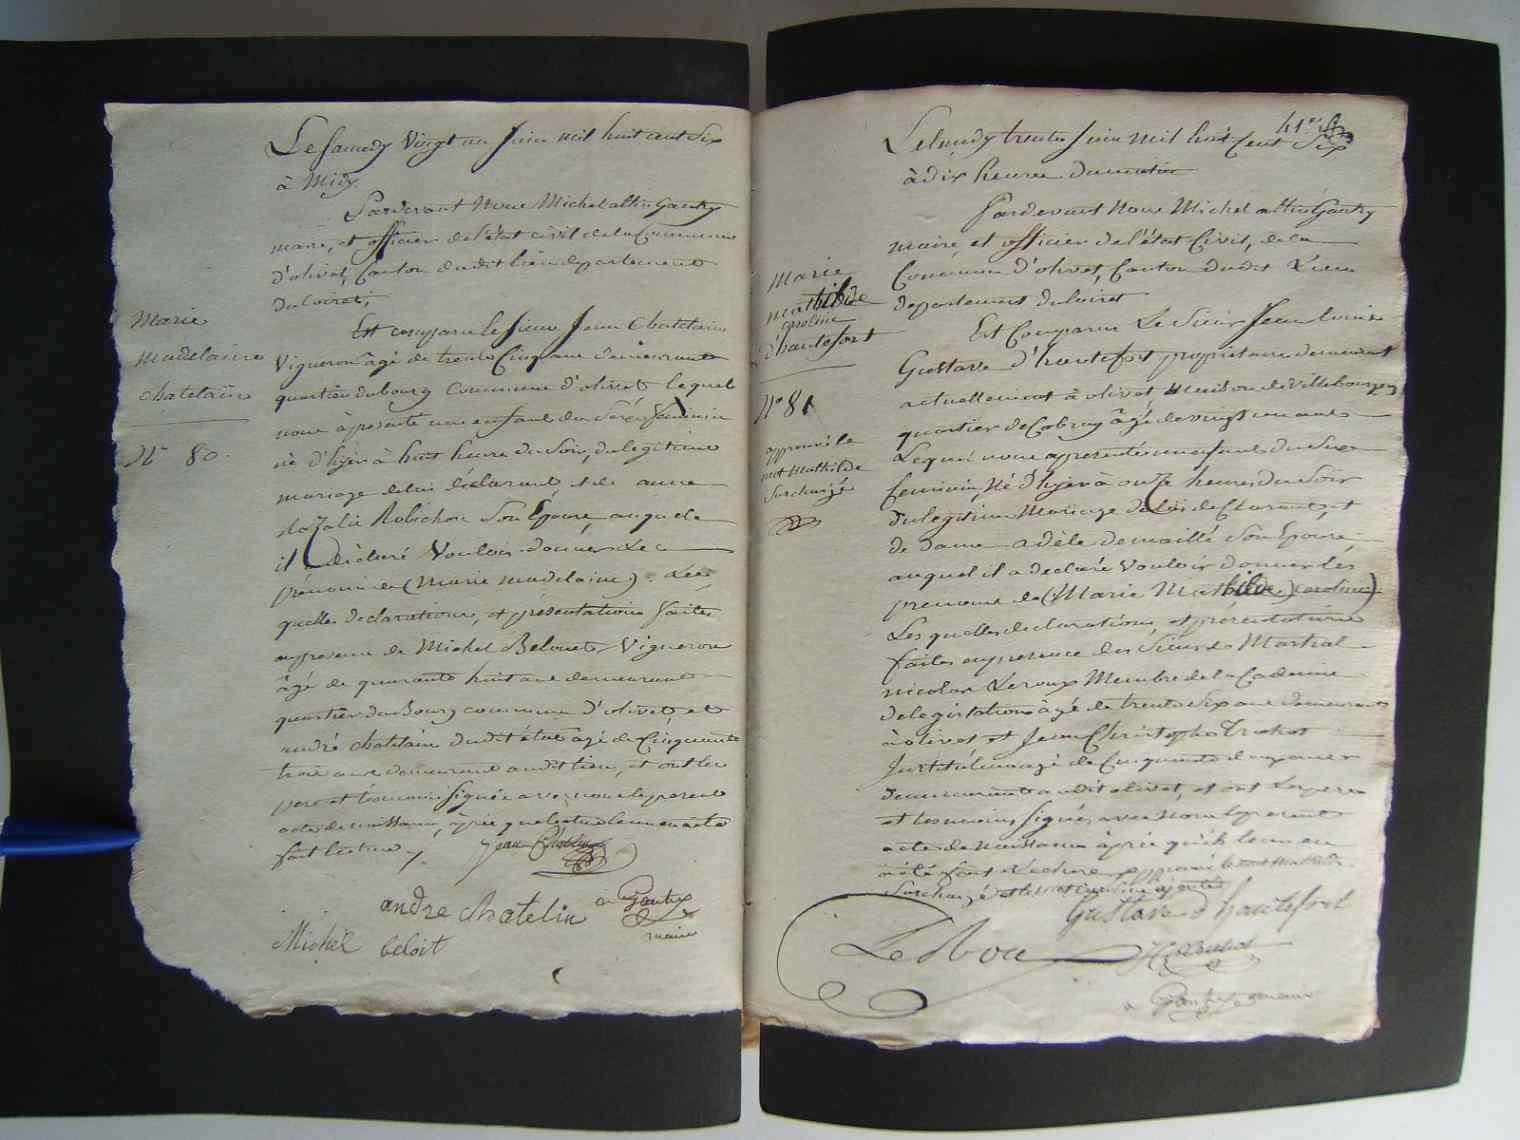 Le Samedy Vingt un Juin mil huit cent Six
à Midy.
Pardevant Nous Michel altin Gautry
maire, et officier de l'état civil de la Commune
d'olivet, Canton dudit lieu departement
du loiret,
Est comparu le Sieur Jean Chatelain
Vigneron âgé de trente Cinq ans demeurant
quartier du bourg Commune d'olivet lequel
nous à presenté un enfant du Sexe feminin
né d'hyer à huit heure du Soir, du legitime
mariage de lui déclarant et de anne
Rozalie Robichon Son Epouse, auquel
il à déclaré Vouloir donner Le
prénoms de (Marie madelaine). Les
quelles declarations, et présentations faites
en presence de Michel Belouet Vigneron
âgé de quarante huit ans demeurant
quartier du Bourg commune d'olivet, et
andré chatelain dudit état agé de Cinquante
trois ans demeurant audit lieu, et ont les
pere et temoins Signés avec nous le present
acte de naissance, après que lecture leur en a été
fait lecture
Jean Chatelin
andre chatelin
a Gautry
maire
Michel beloit
Marie
Madelaine
chatelain
N° 80.
41
Le lundy trente Juin mil huit Cent Six
à dix heures du matin
Pardevant Nous Michel altin Gautry
maire et officier de l'état Civil, de la
Commune d'olivet, Canton dudit Lieu
departement du loiret
Est Comparu Le Sieur Jean louis
Gustave d'hautefort propriétaire demeurant
actuellement à olivet, Maison de Villebourgeon
quartier de Cobray âgé de vingt un ans
Lequel nous a presenté un enfant du Sexe
feminin, Né d'hyer à onze heures du Soir
du legitime Mariage de lui declarant, et
de dame adèle demaillé Son Epouse
auquel il a declaré Vouloir donner les
prenoms de (Marie Mathilde) caroline)
Les quelles declarations, et présentations
faites en presence des Sieurs Martial
nicolas Leroux Membre de la Cademie
de legislation âgé de trente Six ans demeurant
à olivet et Jean Christophe Trochot
Instituteur agé de Cinquante deux ans
demeurant audit olivet, et ont Les pere
et temoins, Signés avec Nous le present
acte de Naissance après qu'il leur en
a été fait Lecture approuvé le mot Mathilde
Surchargé et le mot caroline ajouté
Gustave d'hautefort
Leroux
a Gautry maire
Marie
mathilde
caroline
d'hautefort
N° 81
approuvé le
mot Mathilde
Surchargé